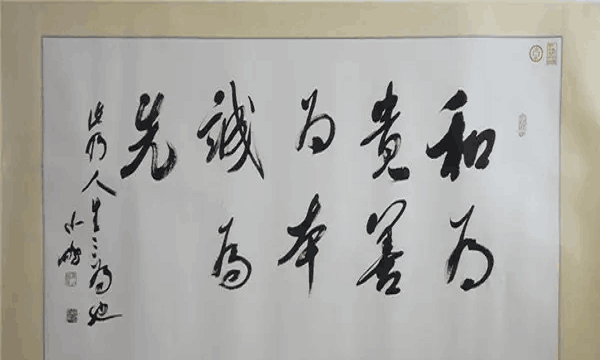 和为
貴善
为本
誠为
先
此乃人生三为也
小